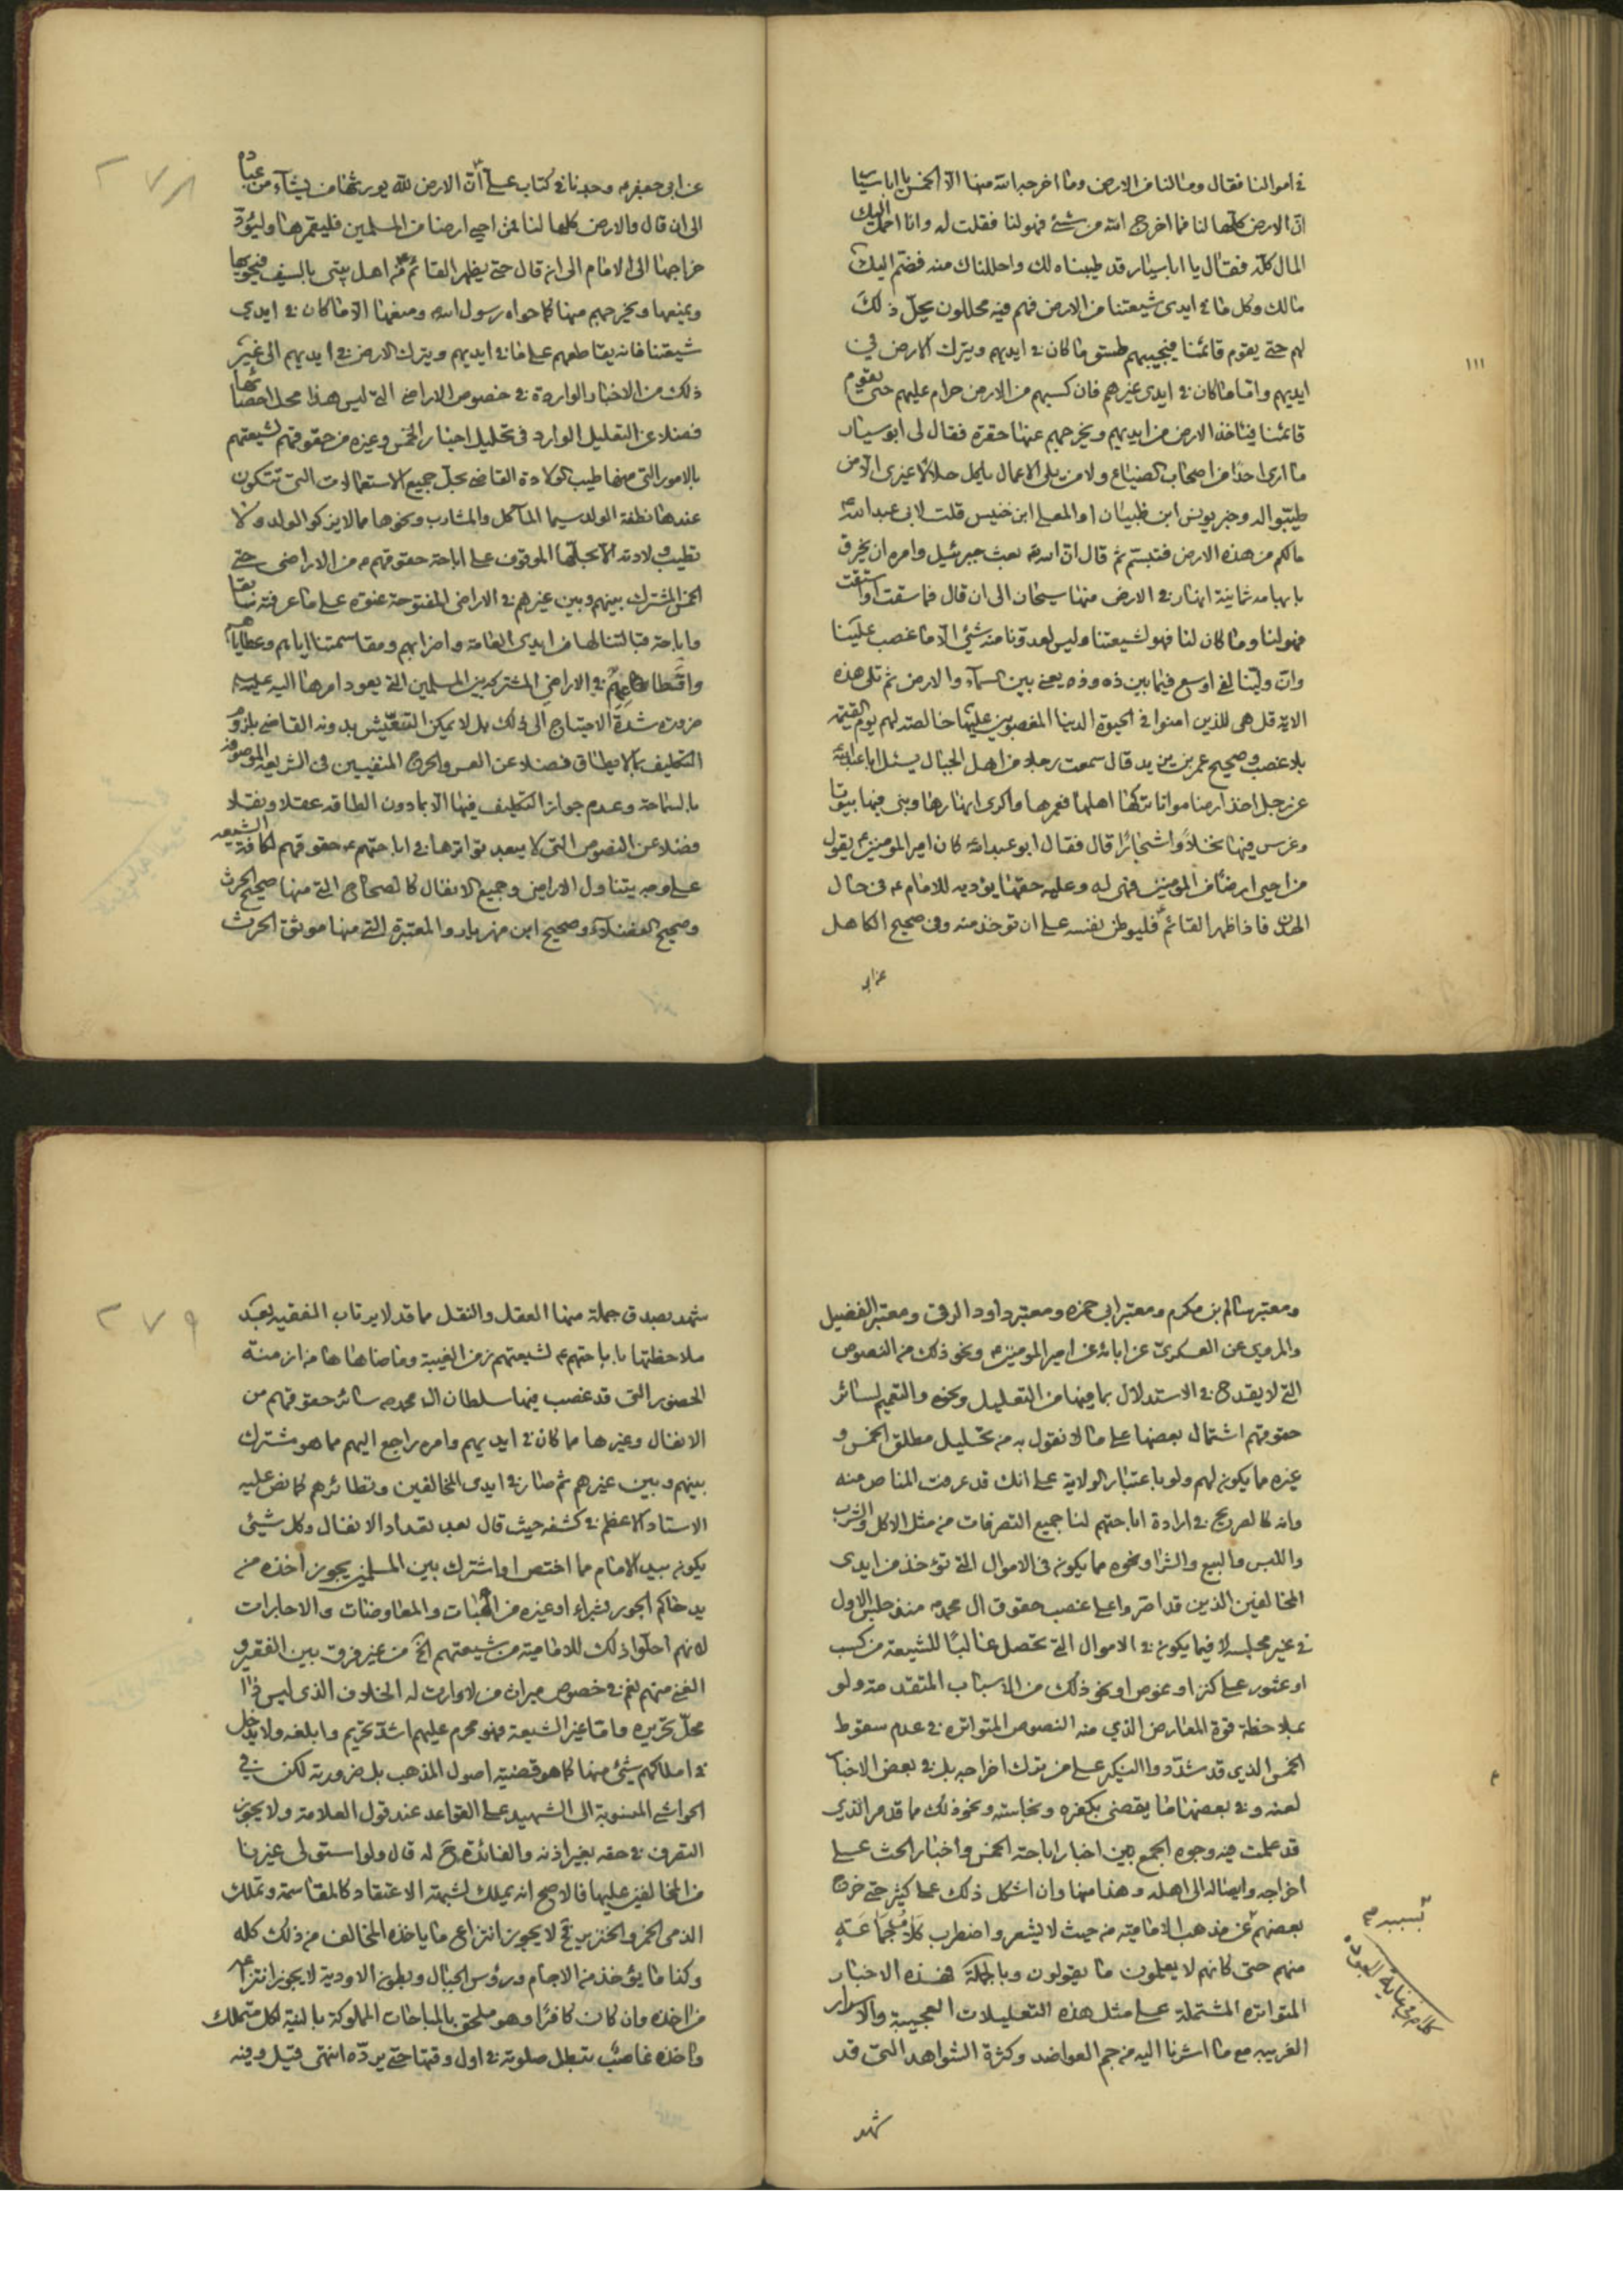 في اموالنا فقال وما لنا من الارض وما اخرج الله منها الا الخمس يا ابا سيار
ان الارض كلها لنا فما اخرج الله من شئ فهو لنا فقلت له وانا احمل اليك
المال كله فقال يا ابا سيار قد طيبناه لك واحللناك منه فضم اليك
مالك وكل ما في ايدى شيعتنا من الارض فهم فيه محللون يحل ذلك
لهم حتى يقوم قائمنا فيجيبهم طسق ما كان في ايديهم ويترك الارض في
ايديهم واما ما كان في ايدى غيرهم فان كسبهم من الارض حرام عليهم حتى يقوم
قائمنا فياخذ الارض من ايديهم ويخرجهم عنها صغرة فقال لى ابو سيار
ما ارى احدا من اصحاب الضياع ولا من يلى الاعمال ياكل حلالا غيرى الا من
طيبوا له وخبر يونس ابن ظبيان او المعلى ابن خنيس قلت لابى عبد الله ع
مالكم من هذه الارض فتبسم ثم قال ان الله تع بعث جبرئيل وامره ان يخرق
بابهامه ثمانية انهار في الارض منها سيحان الى ان قال فما سقت او استقت
فهو لنا وما كان لنا فهو لشيعتنا وليس لعدونا منه شئ الا ما غصب علينا
وان ولينا لفى اوسع فيما بين ذه وذه يعنى بين السماء والارض ثم تلى هذه
الاية قل هى للذين امنوا في الحيوة الدنيا المغصوبين عليها خالصة لهم يوم القيمة
بلا غصب وصحيح عمر بن يزيد قال سمعت رجلا من اهل الجبال يسئل ابا عبد الله
عن رجل اخذ ارضا مواتا تركها اهلها فعمرها واكرى انهارها وبنى فيها بيوتا
وغرس فيها نخلا واشجارا قال فقال ابو عبد الله كان امير المؤمنين ع يقول
من احيى ارضا من المؤمنين فهى له وعليه طسقها يؤديه للامام ع في حال
الهدنة فاذا ظهر القائم ع فليوطن نفسه على ان تؤخذ منه وفى صحيح الكاهلى
عن ابى
١١١
عن ابى جعفر ع وجدنا في كتاب على ع ان الارض لله يورثها من يشاء من عباده
الى ان قال والارض كلها لنا فمن احيى ارضا من المسلمين فليعمرها وليؤد
خراجها الى الامام الى ان قال حتى يظهر القائم ع من اهل بيتى بالسيف فيحويها
ويمنعها ويخرجهم منها كما حواه رسول الله ومنعها الا ما كان في ايدي
شيعتنا فانه يقاطعهم على ما في ايديهم ويترك الارض في ايديهم الى غير
ذلك من الاخبار الواردة في خصوص الاراضى التى ليس هذا محل احصائها
فضلا عن التعليل الوارد في تحليل اخبار الخمس وغيره من حقوقهم لشيعتهم
بالامور التى منها طيب الولادة القاضى بحل جميع الاستعمالات التى تتكون
عندها نطفة الولد سيما المآكل والمشارب ونحوها مما لا يزكو الولد ولا
تطيب ولادته الا بحلها الموقوف على اباحة حقوقهم ع من الاراضى حتى
الخمس المشترك بينهم وبين غيرهم في الاراضى المفتوحة عنوة على ما عرفته سابقا
واباحة قبالتنا لها من ايدى العامة واضرابهم ومقاسمتنا اياهم وعطاياهم
واقطاعهم في الاراضى المشتركة بين المسلمين التى يعود امرها اليه عليه السلام
ضرورة شدة الاحتياج الى ذلك بل لا يمكن التعيش بدونه القاضى بلزوم
التكليف بما لا يطاق فضلا عن العسر والحرج المنفيين في الشريعة الموصوفة
بالسماحة وعدم جواز التكليف فيها الا بما دون الطاقة عقلا ونقلا
فضلا عن النصوص التى لا يبعد تواترها في اباحتهم ع حقوقهم لكافة الشيعة
على وجه يتناول الاراضى وجميع الانفال كالصحاح التى منها صحيح الحرث
وصحيح الفضلاء وصحيح ابن مهزيار والمعتبرة التى منها موثق الحرث
٢٧٨
ومعتبر سالم بن مكرم ومعتبر ابى حمزة ومعتبر داود الرقى ومعتبر الفضيل
والمروى عن العسكرى عن ابائه عن امير المؤمنين ع ونحو ذلك من النصوص
التى لا يقدح في الاستدلال بما فيها من التعليل ونحوه والتعميم لسائر
حقوقهم اشتمال بعضها على ما لا نقول به من تحليل مطلق الخمس و
غيره مما يكون لهم ولو باعتبار الولاية على انك قد عرفت المناص منه
وانه كالصريح في ارادة اباحتهم لنا جميع التصرفات من مثل الاكل والشرب
واللبس والبيع والشرا ونحوه مما يكون في الاموال التى تؤخذ من ايدى
المخالفين الذين قد اصروا على غصب حقوق ال محمد ص منذ جلس الاول
في غير مجلسه لا فيما يكون في الاموال التى تحصل غالبا للشيعة من كسب
او عثور على كنز او غوص او نحو ذلك من الاسباب المتقدمة ولو
بملاحظة قوة المعارض الذي منه النصوص المتواترة في عدم سقوط
الخمس الذي قد شددوا النكير على من يترك اخراجه بل في بعض الاخبار
لعنه وفي بعضها ما يقضى بكفره ونجاسته ونحو ذلك مما قد مر الذي
قد علمت فيه وجوه الجمع بين اخبار اباحة الخمس واخبار الحث على
اخراجه وايصاله الى اهله وهذا منها وان اشكل ذلك على كثير حتى خرج
بعضهم عن مذهب الامامية من حيث لا يشعر واضطرب كلام جماعة
منهم حتى كانهم لا يعلمون ما يقولون وبالجملة فهذه الاخبار
المتواترة المشتملة على مثل هذه التعليلات العجيبة والاسرار
الغريبة مع ما اشرنا اليه من جم العواضد وكثرة الشواهد التى قد
شهد
شهد بصدق جملة منها العقل والنقل مما قد لا يرتاب الفقيه بعد
ملاحظتها باباحتهم ع لشيعتهم زمن الغيبة وما ضاهاها من ازمنة
الحضور التى قد غصب فيها سلطان ال محمد ص سائر حقوقهم من
الانفال وغيرها مما كان في ايديهم وامره راجع اليهم مما هو مشترك
بينهم وبين غيرهم ثم صار في ايدى المخالفين ونظائرهم كما نص عليه
الاستاد الاعظم في كشفه حيث قال بعد تعداد الانفال وكل شئ
يكون بيد الامام مما اختص او اشترك بين المسلمين يجوز اخذه من
يد حاكم الجور بشراء او غيره من الهبات والمعاوضات والاجارات
لانهم احلوا ذلك للامامية من شيعتهم الخ من غير فرق بين الفقير و
الغنى منهم نعم في خصوص ميراث من لا وارث له الخلاف الذى ليس ذا
محل تحريره واما غير الشيعة فهو محرم عليهم اشد تحريم وابلغه ولا يدخل
في املاكهم شئ منها كما هو قضية اصول المذهب بل ضرورته لكن في
الحواشى المنسوبة الى الشهيد على القواعد عند قول العلامة ولا يجوز
التصرف في حقه بغير اذنه والفائدة ح له قال ولو استولى غيرنا
من المخالفين عليها فالاصح انه يملك لشبهة الاعتقاد كالمقاسمة وتملك
الذمى الخمر والخنزير فح لا يجوز انتزاع ما ياخذه المخالف من ذلك كله
وكذا ما يؤخذ من الاجام ورؤس الجبال وبطون الاودية لا يجوز انتزاعه
من اخذه وان كان كافرا وهو ملحق بالمباحات المملوكة بالنية لكل متملك
واخذه غاصب تبطل صلوته في اول وقتها حتى يرده انتهى قيل وفيه
٢٧٩